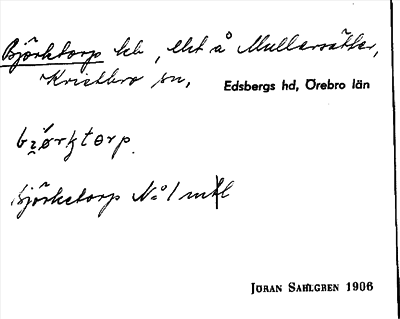 Björktorp hb, lht å Mullersätter,
Kristbro sn,
Edsbergs hd, Örebro län
bjørktorp
Björketorp No 1 mtl
JÖRAN SAHLGREN 1906